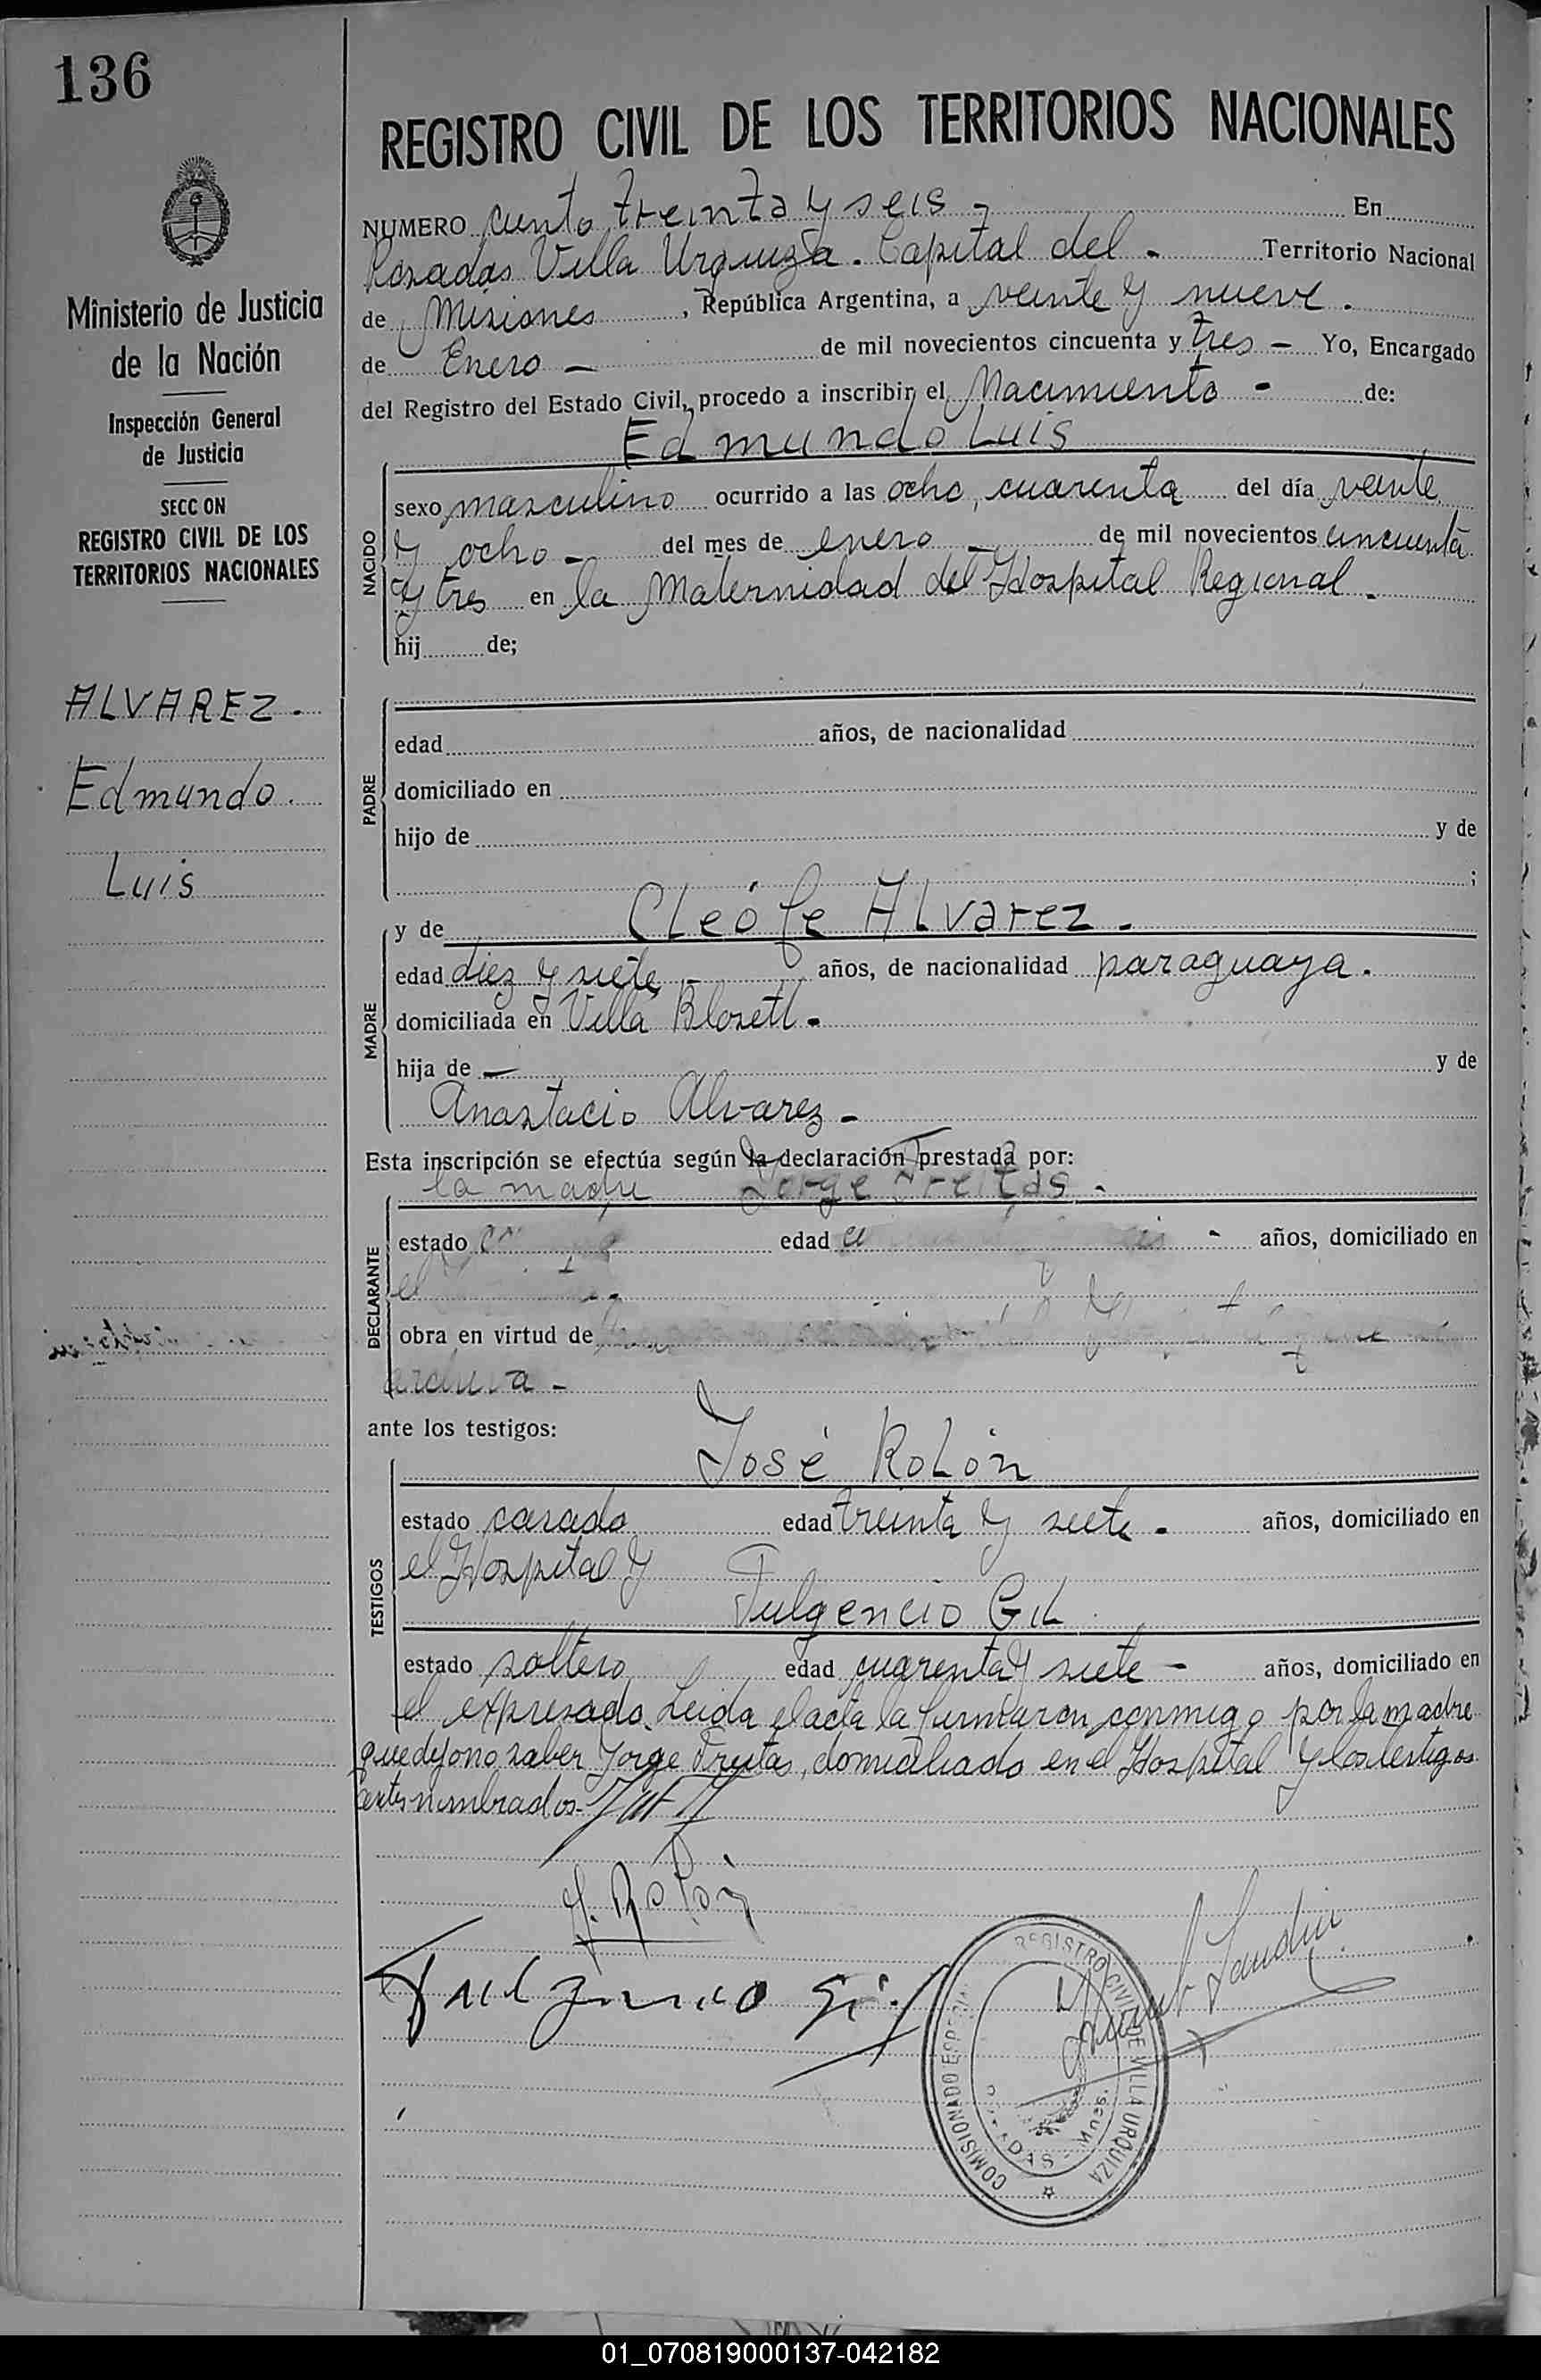 136
Ministerio de Justicia
de la Nación
Inspección General
de Justicia
SECC ON
REGISTRO CIVIL DE LOS
TERRITORIOS NACIONALES
ALVAREZ.
Edmundo.
Luis
REGISTRO CIVIL DE LOS TERRITORIOS NACIONALES
NUMERO ciento treinta y seis - En
Posadas Villa Urquiza. Capital del - Territorio Nacional
de Misiones, República Argentina, a veinte y nueve.
de Enero - de mil novecientos cincuenta y tres - Yo, Encargado
del Registro del Estado Civil, procedo a inscribir el Nacimiento - de:
Edmundo Luis
NACIDO
sexo masculino ocurrido a las ocho, cuarenta del día veinte
y ocho - del mes de enero - de mil novecientos cincuenta
y tres en la Maternidad del Hospital Regional.
hij de;
PADRE
edad años, de nacionalidad
domiciliado en
hijo de y de
;
MADRE
y de Cleófe Alvarez.
edad diez y siete - años, de nacionalidad paraguaya.
domiciliada en Villa Blosetl.
hija de - y de
Anastacio Alvarez -
Esta inscripción se efectúa según la declaración prestada por:
DECLARANTE
la madre Jorge Freitas.
estado edad - años, domiciliado en
el
obra en virtud de
archiva -
ante los testigos:
TESTIGOS
José Rolón
estado casado edad treinta y siete. años, domiciliado en
el Hospital y
Fulgencio Gil
estado soltero edad cuarenta y siete - años, domiciliado en
el expresado. Leida el acta la firmaron conmigo por la madre
que dijo no saber Jorge Freitas, domiciliado en el Hospital y los testigos
antes nombrados.
J. Rolón
Fulgencio Gil
REGISTRO CIVIL DE VILLA URQUIZA
COMISIONADO
01_070819000137-042182